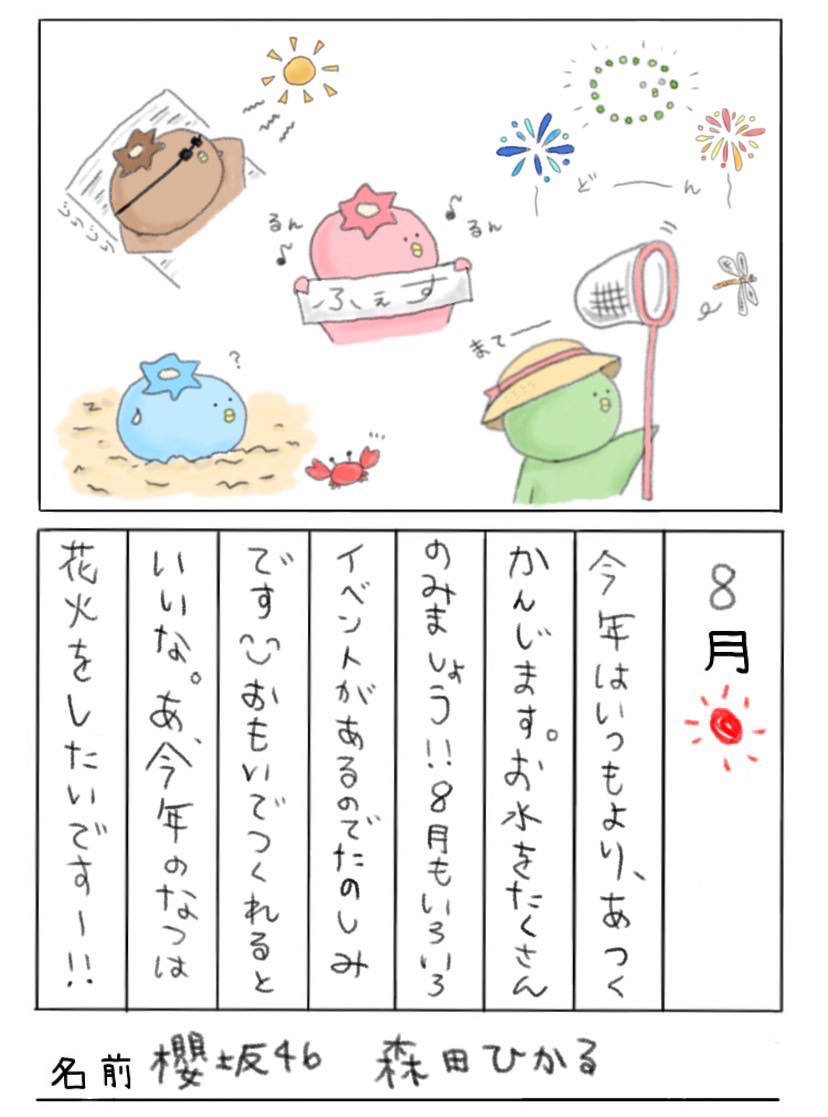 どーん
るん
るん
ふぇす
まてー
じりじり
?
8月
今年はいつもより、あつく
かんじます。お水をたくさん
のみましょう!!8月もいろいろ
イベントがあるのでたのしみ
です おもいでつくれると
いいな。あ、今年のなつは
花火をしたいですー!!
名前 櫻坂46 森田ひかる